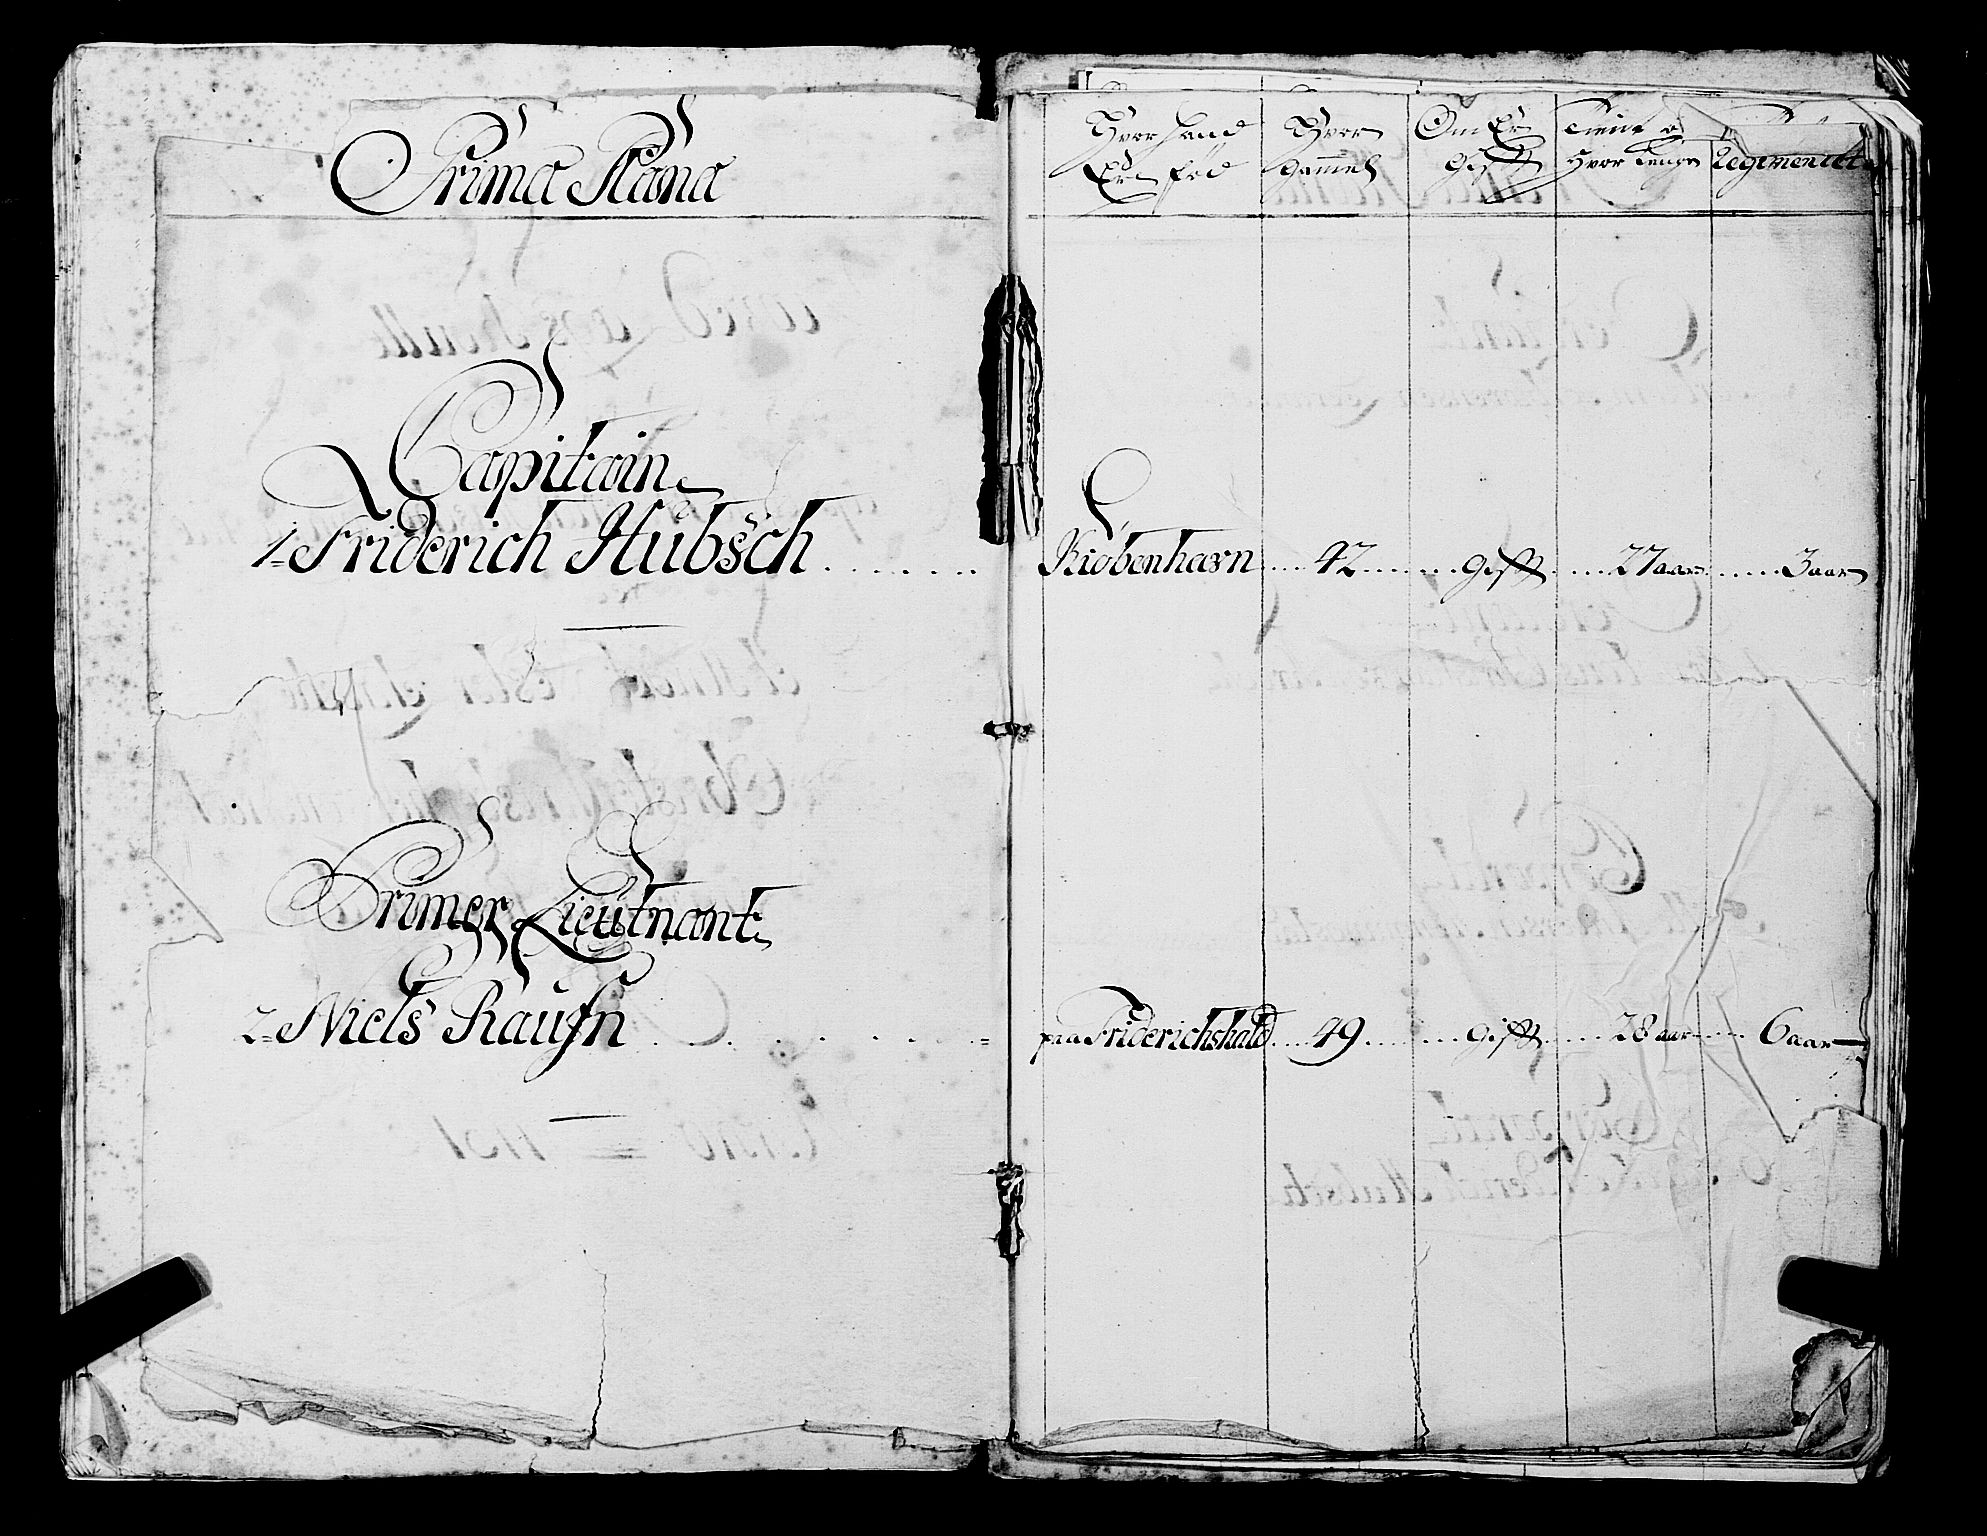 Prima Plana
Capitain
1= Friderich Hubsch
Primer Lieutnant
2= Niels Rausn
Hvor hand Er fød
Hvor gammel
Om Er Gift
Tient og Hvor Lenge
Regimentet
Kiobenhavn 42 Gift 27 aar 3 aar
paa Friderichshald 49 Gift 28 aar 6 aar